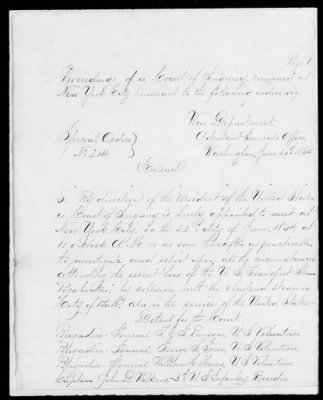 Page 1
Proceedings of a Court of Inquiry, convened at
New York City pursuant to the following order viz:
War Department
Adjutant General's Office
Special Orders
No 214
Washington, June 1864
Extract
6. By direction of the President of the United States
a Court of Inquiry is hereby appointed to meet at
New York City, on the 23d day of June, 1864, at
11 o'clock A.M. or as soon thereafter as practicable
to investigate and report upon all the circumstances
attending the recent loss of the U.S. Transport Steamer
Pocahontas, by collision with the chartered steamer
"City of Bath", also in the service of the United States.
Detail for the Court.
Brigadier General U.S. Volunteers
Brigadier General George S. Greene, U.S. Volunteers
Brigadier General William U.S. Volunteers
Captain John D. Wilkins 3d U.S. Infantry Recorder